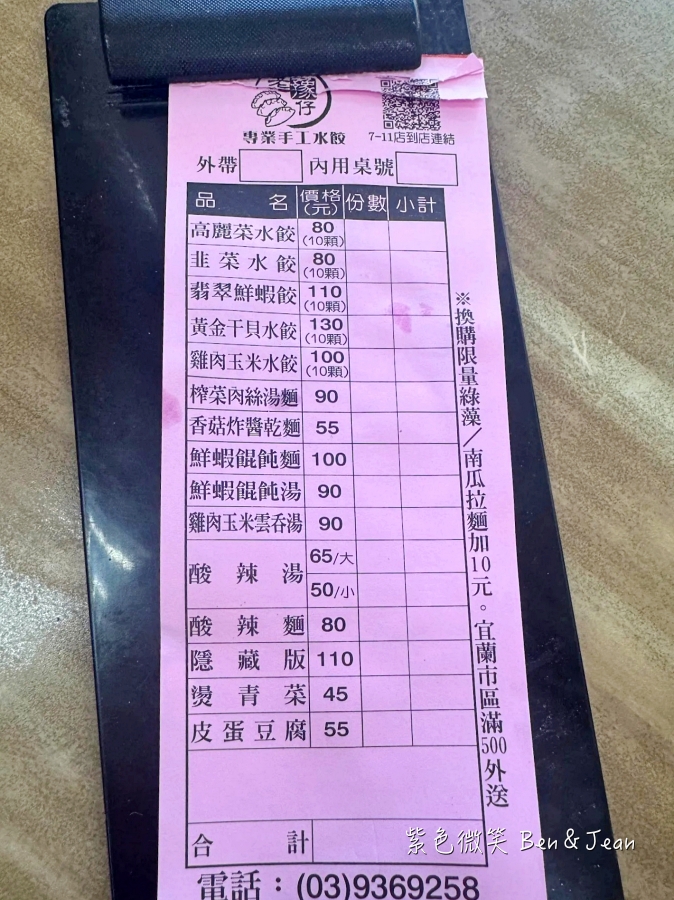 老豫仔
專業手工水餃
7-11店到店連結
外帶 內用桌號
品名 價格(元) 份數 小計
高麗菜水餃 80 (10顆)
韭菜水餃 80 (10顆)
翡翠鮮蝦餃 110 (10顆)
黃金干貝水餃 130 (10顆)
雞肉玉米水餃 100 (10顆)
榨菜肉絲湯麵 90
香菇炸醬乾麵 55
鮮蝦餛飩麵 100
鮮蝦餛飩湯 90
雞肉玉米雲吞湯 90
酸辣湯 65/大
50/小
酸辣麵 80
隱藏版 110
燙青菜 45
皮蛋豆腐 55
合計
電話：(03)9369258
※換購限量綠藻/南瓜拉麵加10元。宜蘭市區滿500外送
紫色微笑 Ben & Jean